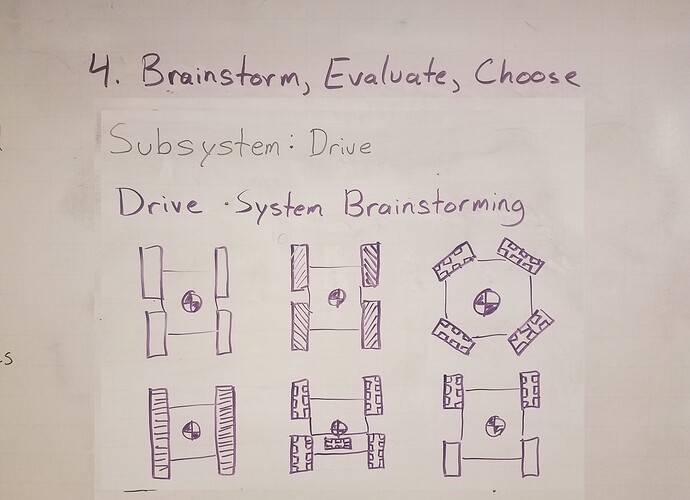 4. Brainstorm, Evaluate, Choose
Subsystem: Drive
Drive System Brainstorming
s